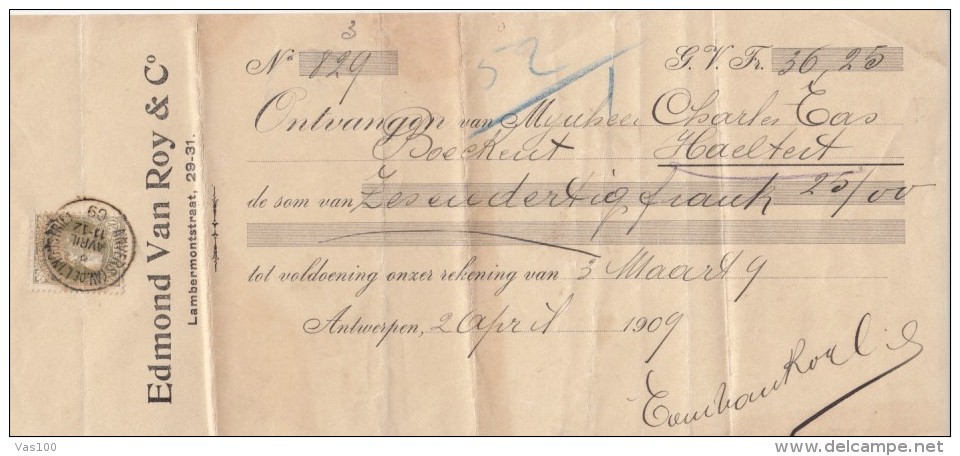 3
Nº 829
52
1
G. V. Fr. 36,25
Ontvangen van Mynheer Charles Tas
Boekent Haeltert
de som van Zesendertig frank 25/00
tot voldoening onzer rekening van 3 Maart 9
Antwerpen, 2 April 1909
Edmond Van Roy & Cº
Lambermontstraat, 29-31.
ANVERS
AVRIL
11-12
09
Vas100
delcampe.net